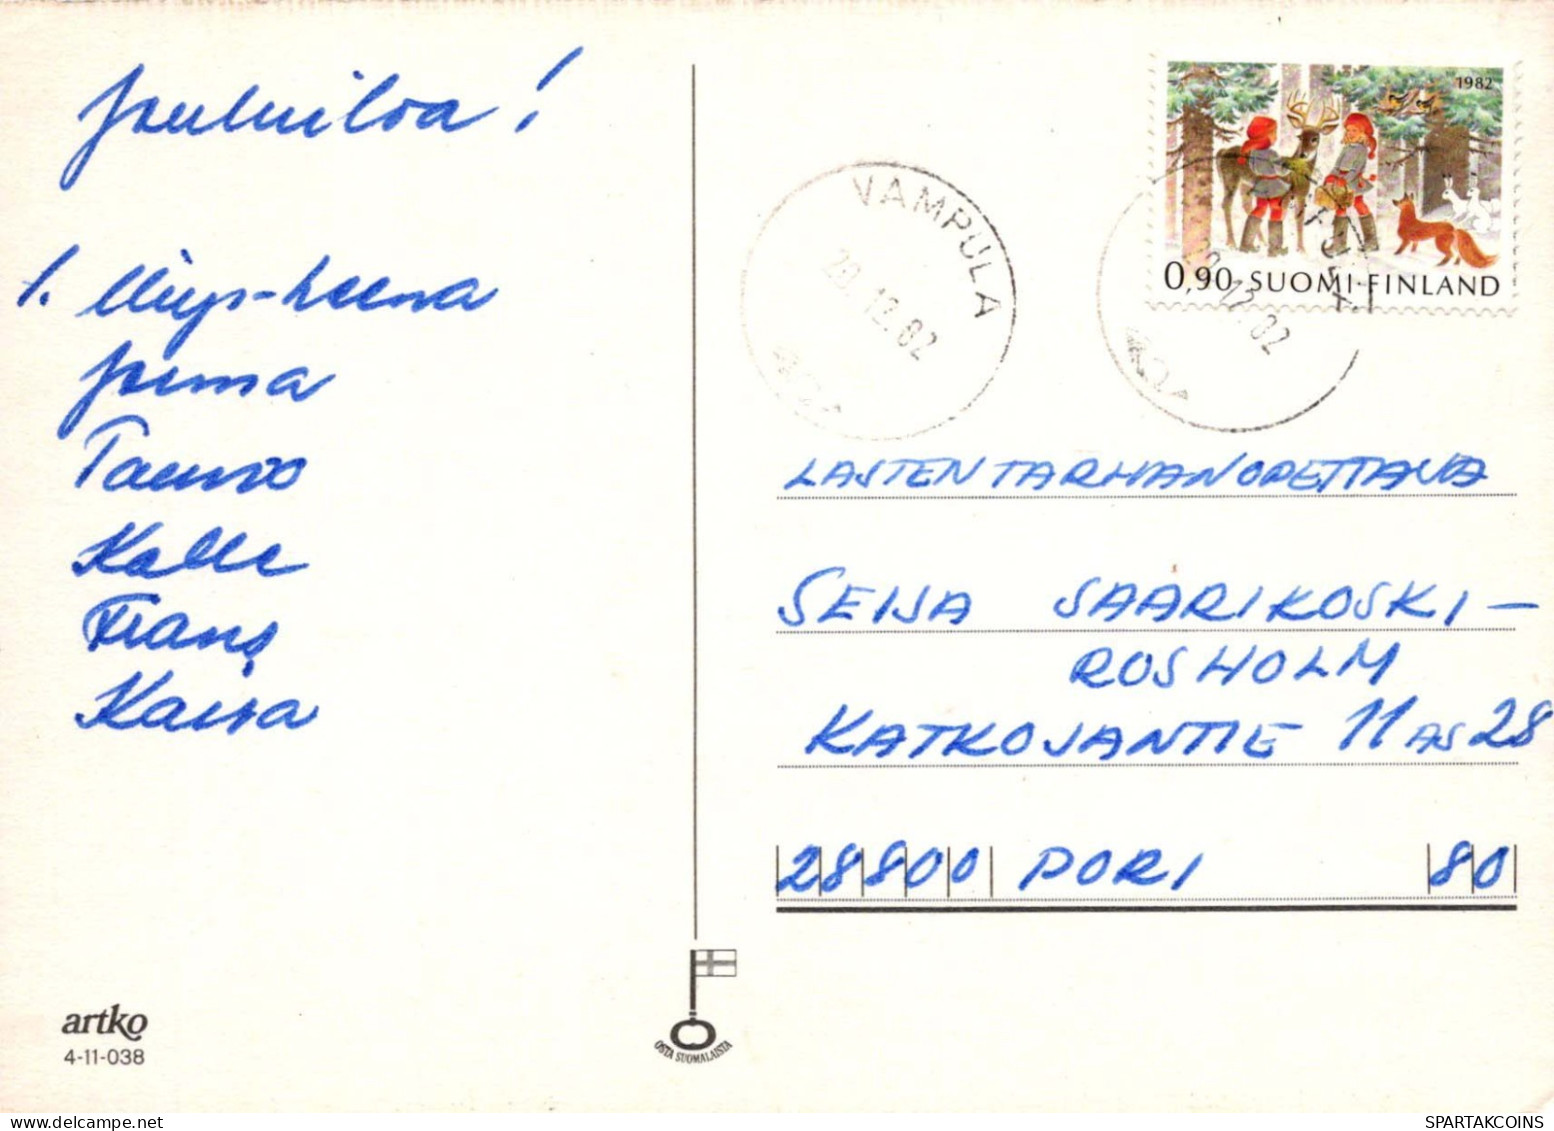 Jouluiloa!
1. Mirja-Leena
Juma
Tauno
Kalle
Frans
Kaisa
artko
4-11-038
1982
0,90 SUOMI·FINLAND
VAMPULA
20.12.82
LASTENTARHANOPETTAJA
SEIJA SAARIKOSKI-
ROSHOLM
KATKOJANTIE 11 AS 28
28800 PORI 80
OSTA SUOMALAISTA
SPARTAKCOINS